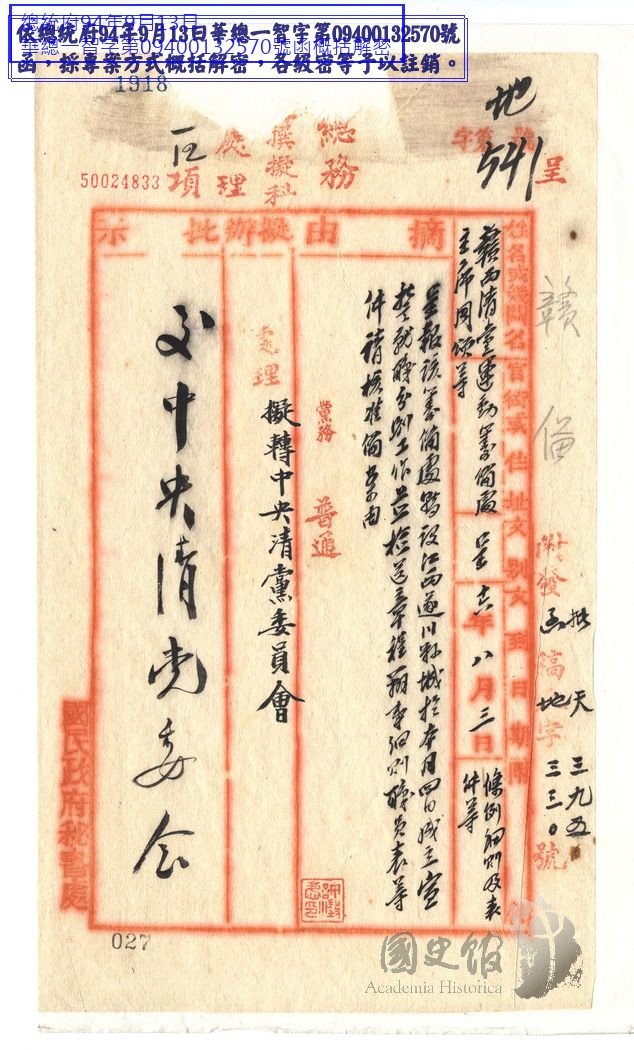 總統府94年9月13日
華總一智字第09400132570號函概括解密
依總統府94年9月13日華總一智字第09400132570號
函，採專案方式概括解密，各級密等予以註銷。
1918
50024833
地
字第 號
541
呈
總務
撰擬科
處理
項
姓名或機關名
官銜或住址
文別
文到日期
附
摘由
擬辦
批示
贛西清黨運動籌備處
主席周頌等
呈
十六年八月三日
條例細則及表
件等
呈報該籌備處暫設江西遂川縣城於本月四日成立宣
誓就職分別工作並檢送章程辦事細則職員表等
件請核准備案由
黨務
普通
處理
擬轉中央清黨委員會
交中央清党委会
贛
備
批天三九五
函地三三〇
附發
稿字
號
國民政府秘書處
027
國史館
Academia Historica